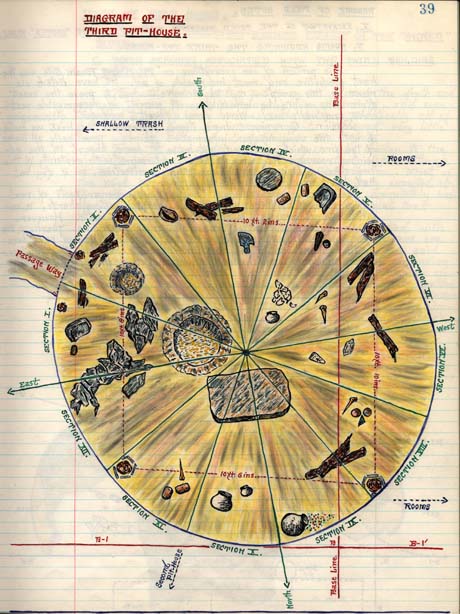 39
DIAGRAM OF THE
THIRD PIT-HOUSE.
South
Base Line
SHALLOW TRASH
ROOMS
SECTION III.
SECTION IV.
SECTION V.
SECTION II.
10 ft. 2 ins.
Passage Way
SECTION VI.
SECTION I.
West
SECTION VII.
East
SECTION XII.
SECTION VIII.
10 ft. 6 ins.
SECTION XI.
SECTION IX.
SECTION X.
ROOMS
B-1
B
B-1'
Second
Pit-House
North
Base Line